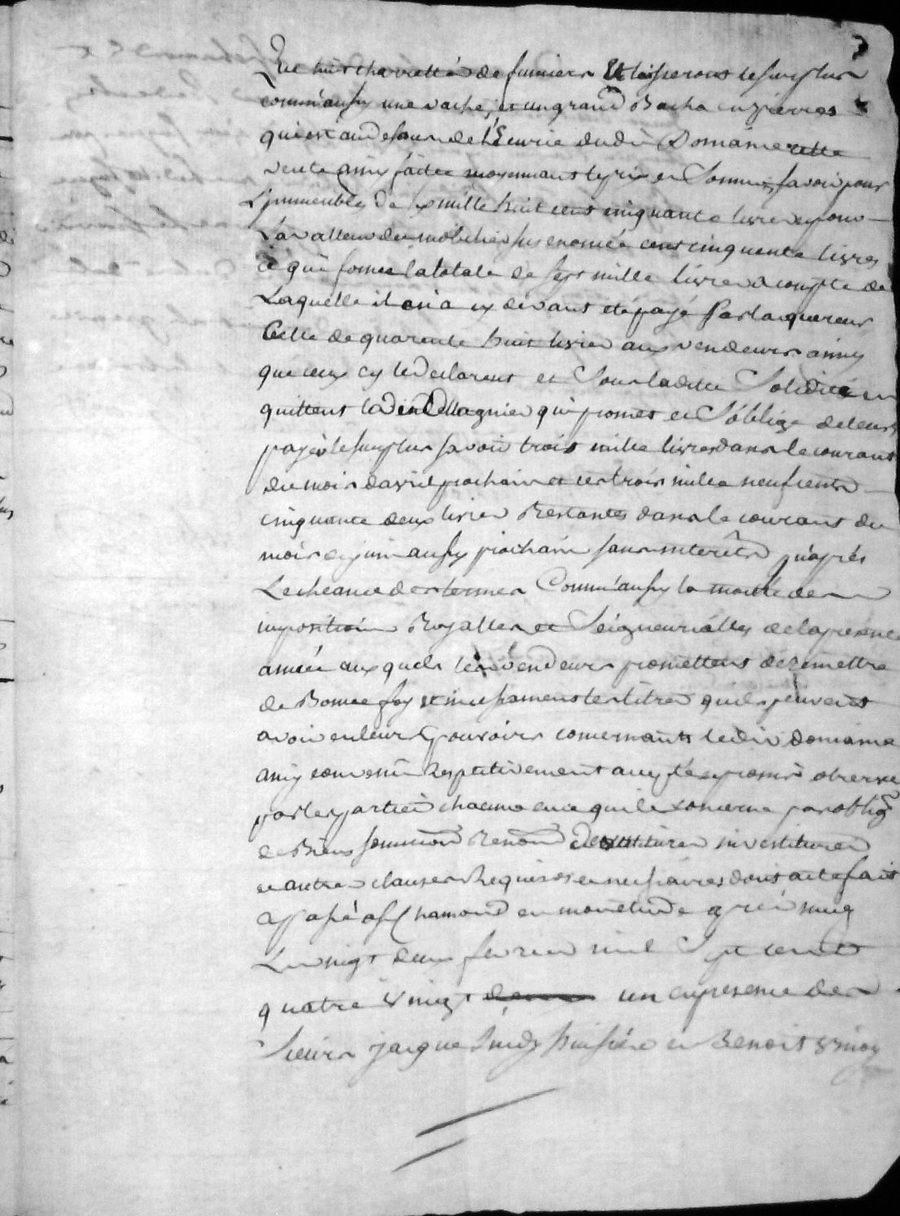 que huit charrettés de fumiers Et laisserons le surplus
comm'aussy une vache, et un grand Bacha en pierres
qui est au desous de l'Ecurie dudit Domaine cette
vente ainsy faitte moyennant le prix et Somme, savoir pour
L'jmmeubles de six mille huit cent cinquante livres et pour
la valleur des mobiliers sus enoncés cent cinquante livres
ce qui forme la totale de sept mille livres a compte de
Laquelle il en a cy devant eté payé par l'aquereur
Celle de quarente huit livres aux vendeurs ainsy
que ceux cy le declarent et Sous ladite Solidité en
quittent ledit qui promet et S'oblige de leurs
payér le surplus savoir trois mille livres dans le courant
du mois d'avril prochain et les trois mille neuf cents
cinquante deux livres Restantes dans le courant du
mois de juin aussy prochain sans interêts qu'aprés
L'echeance des termes Comm'aussy la moitié des
imposition Royalles et Seigneurialles de la presente
année aux quels les vendeurs promettent de remettre
de Bonne foy et incessament les titres quils peuvent
avoir en leurs pouvoirs concernants ledit domaine
ainsy convenu Respectivement accepté et promis observer
par les parties chacune en ce qui le concerne par oblig
de Biens soumission Renon devestitures investitures
et autres clauses Requises et necessaires dont acte fait
et passé a St Chamond en mon etude aprés midy
Le vingt deux fevrier mil Sept cents
quatre vingt un en presence des
Sieurs jacque huissier et Benoit